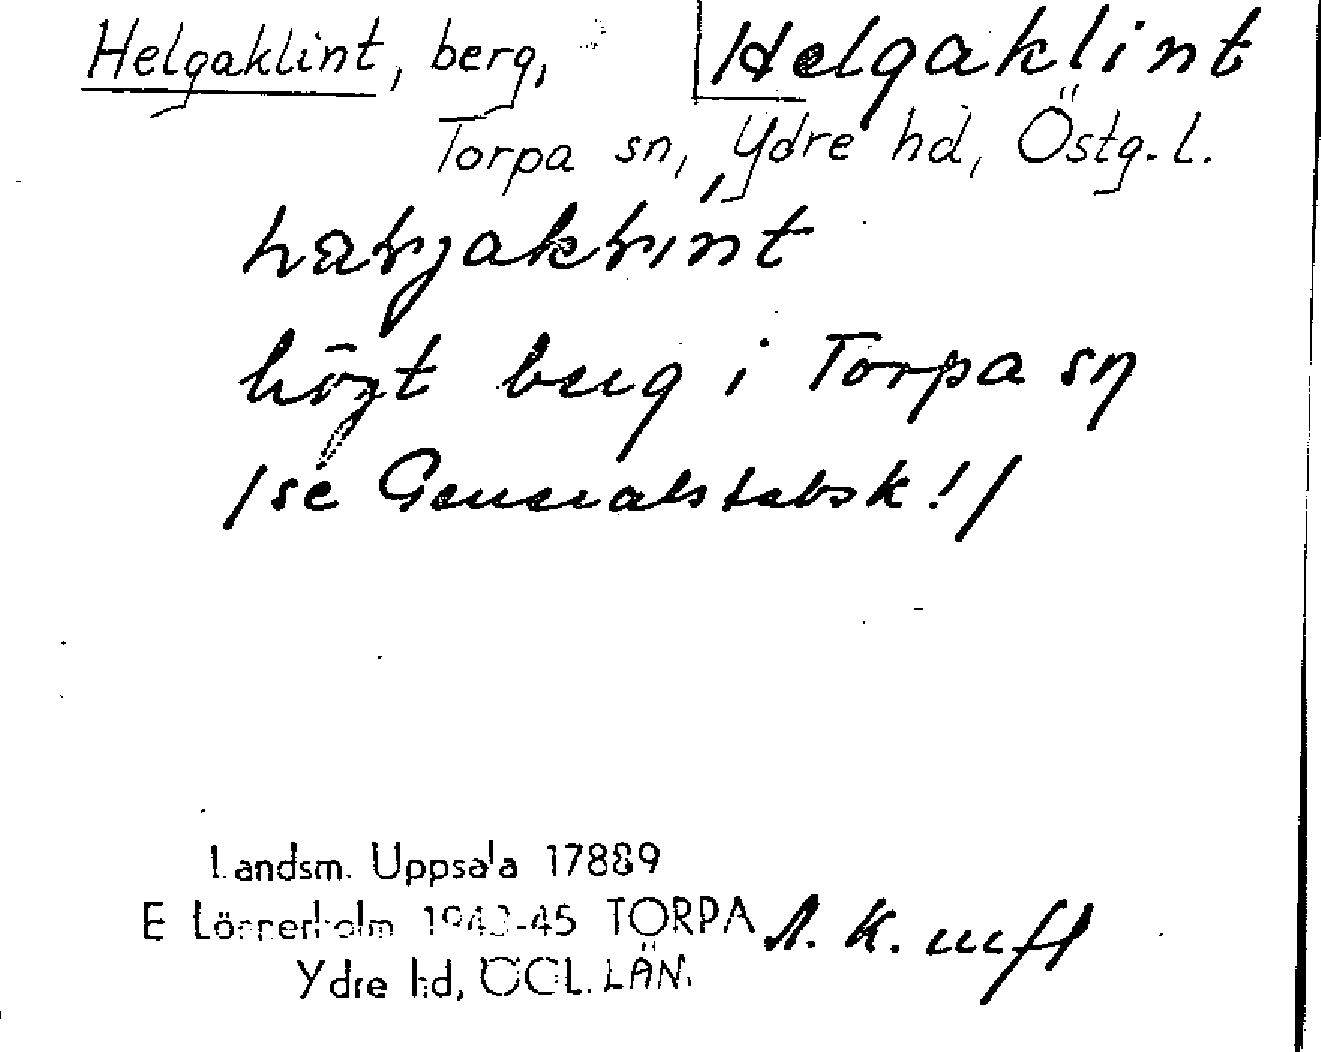 Helgaklint, berg,
Helgaklint
Torpa sn, Ydre hd, Östg. l.
högt berg i Torpa sn
/se Generalstabsk!/
Landsm. Uppsala 17889
E Lönnerholm 1943-45 TORPA
Ydre hd, ÖGL. LÄN.